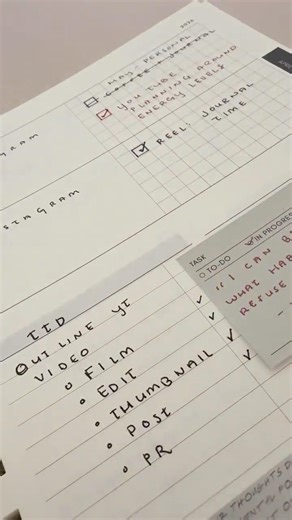 2024
MAY - PERSONAL
COFFEE + JOURNAL
YOU TUBE
PLANNING AROUND
ENERGY LEVELS
REEL: JOURNAL
TIME
GRAM
STAGRAM
TASK
TO-DO
IN PROGRES
"I CAN B
WHAT HAP
REFUSE
TTD
OUTLINE YT
VIDEO
FILM
EDIT
THUMBNAIL
POST
PR
THOUGHTS